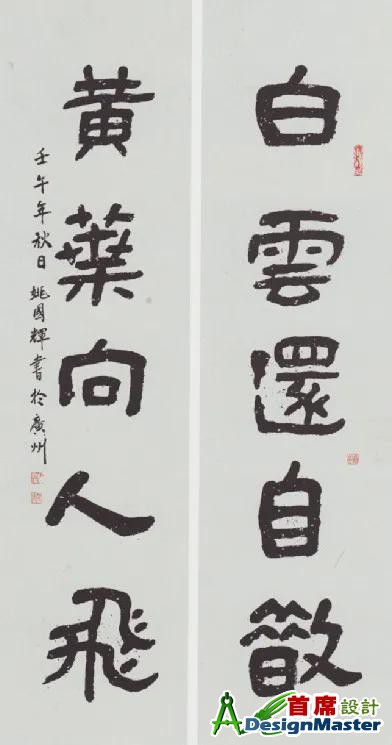 白雲還自散
黃葉向人飛
壬午年秋日姚國輝書於廣州
首席設計
ADesignMaster